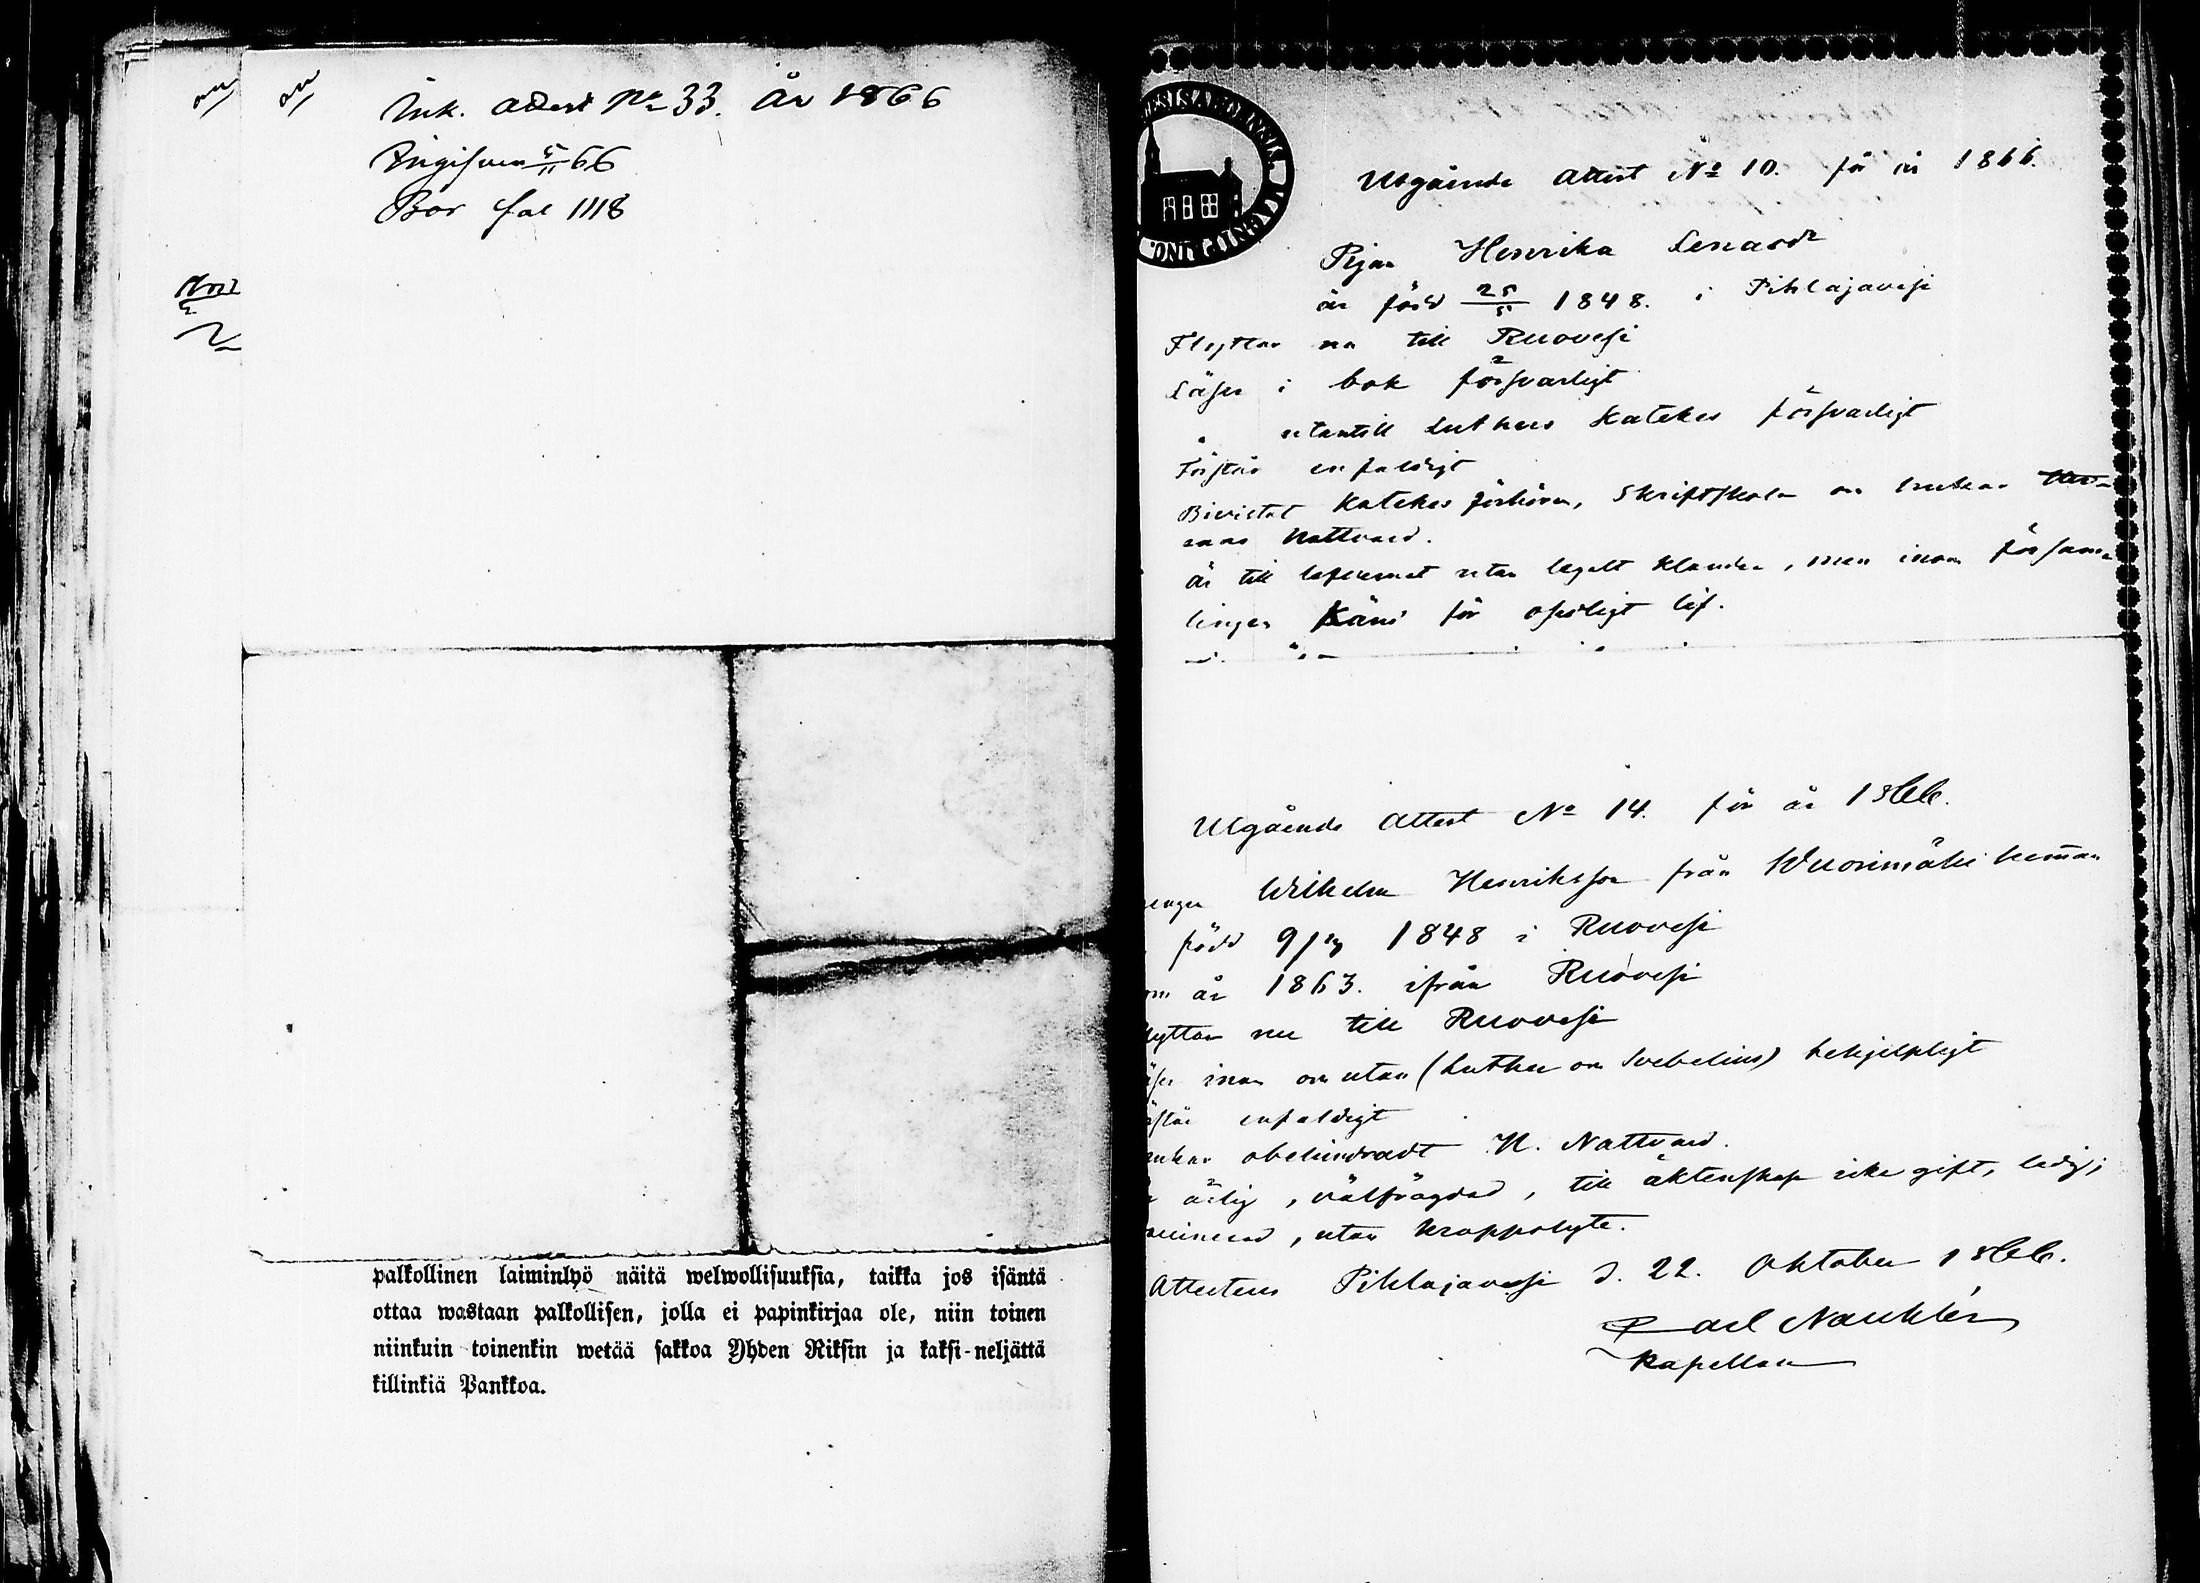 Ink. attest No 33. År 1866
Ingifven 5/11 66
Bor fol 1118
palkollinen laiminlyö näitä welwollisuuksia, taikka jos isäntä
ottaa wastaan palkollisen, jolla ei papinkirjaa ole, niin toinen
niinkuin toinenkin wetää sakkoa Yhden Riksin ja kaksi-neljättä
killinkiä Pankkoa.
Utgående Attest No 10. för år 1866.
Pigan Henrika Lenardr
är född 25/5 1848. i Pihlajavesi
Flyttar nu till Ruovesi
Läser i bok försvarligt
" utantill Luthers Katekes försvarligt
Förstår enfaldigt
Bivistat Katekes förhören, Skriftskola och brukar
Nattvard.
är till lefvernet utan legalt klander, men inom försam-
lingen känd för osedligt lif.
Utgående Attest No 14. för år 1866.
Wilhelm Henriksson från Wuorimäki hemman
född 9/ 1848 i Ruovesi
om år 1863. ifrån Ruovesi
lyttar nu till Ruovesi
äser innan och utan (Luther och Svebelius) behjelpligt
rstår enfaldigt
rukar obehindradt H. Nattvard.
r ärlig, välfrägdad, till äktenskap icke gift, ledig;
vaccinerad, utan kroppslyte.
Attesteras Pihlajavesi d. 22. Oktober 1866.
Carl Nauklér
Kapellan